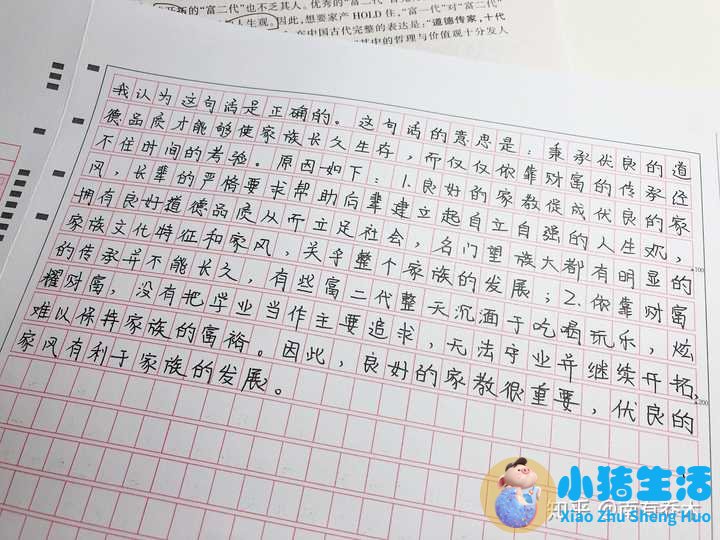 开拓的“富二代”也不乏其人。优秀的“富二代”
人生观。因此,想要家产HOLD住,“富一代”对“富二代”
在中国古代完整的表达是:“道德传家,十代
其中的哲理与价值观十分发人
我认为这句话是正确的。这句话的意思是:秉承优良的道
德品质才能够使家族长久生存,而仅仅依靠财富的传承经
不住时间的考验。原因如下:1.良好的家教促成优良的家
风,长辈的严格要求帮助后辈建立起自立自强的人生观,
拥有良好道德品质从而立足社会,名门望族大都有明显的
家族文化特征和家风,关乎整个家族的发展;2.依靠财富
的传承并不能长久,有些富二代整天沉湎于吃喝玩乐,炫
耀财富,没有把学业当作主要追求,无法守业并继续开拓,
难以保持家族的富裕。因此,良好的家教很重要,优良的
家风有利于家族的发展。
100
200
小猪生活
知乎 @南有乔木
Xiao Zhu Sheng Huo